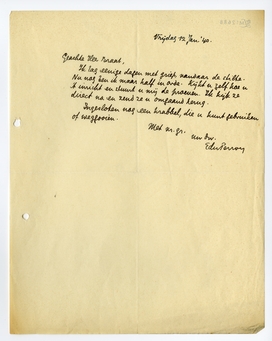 Vrijdag 12 Jan. '40.
Geachte Heer Braat,
Ik lag eenige dagen met griep vandaar de stilte.
Nu nog ben ik maar half in orde. Kijkt u zelf hoe u
't inricht en stuurt u mij de proeven. Ik kijk ze
direct na en zend ze u omgaand terug.
Ingesloten nog een krabbel, die u kunt gebruiken
of weggooien.
Met vr. gr.
uw dw.
EduPerron